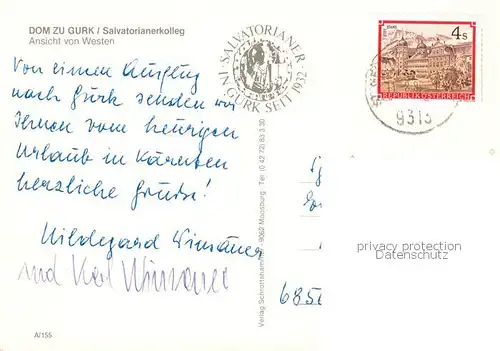 DOM ZU GURK / Salvatorianerkolleg
Ansicht von Westen
Von einem Ausflug
nach Gurk senden wir
Ihnen vom heurigen
Urlaub in Kärnten
herzliche Grüße!
Hildegard
und Karl
A/155
SALVATORIANER
IN GURK SEIT 1932
Verlag Schrottshammer 9062 Moosburg · Tel (0 42 72) 83 3 30
4 S
REPUBLIK ÖSTERREICH
9313
privacy protection
Datenschutz
685